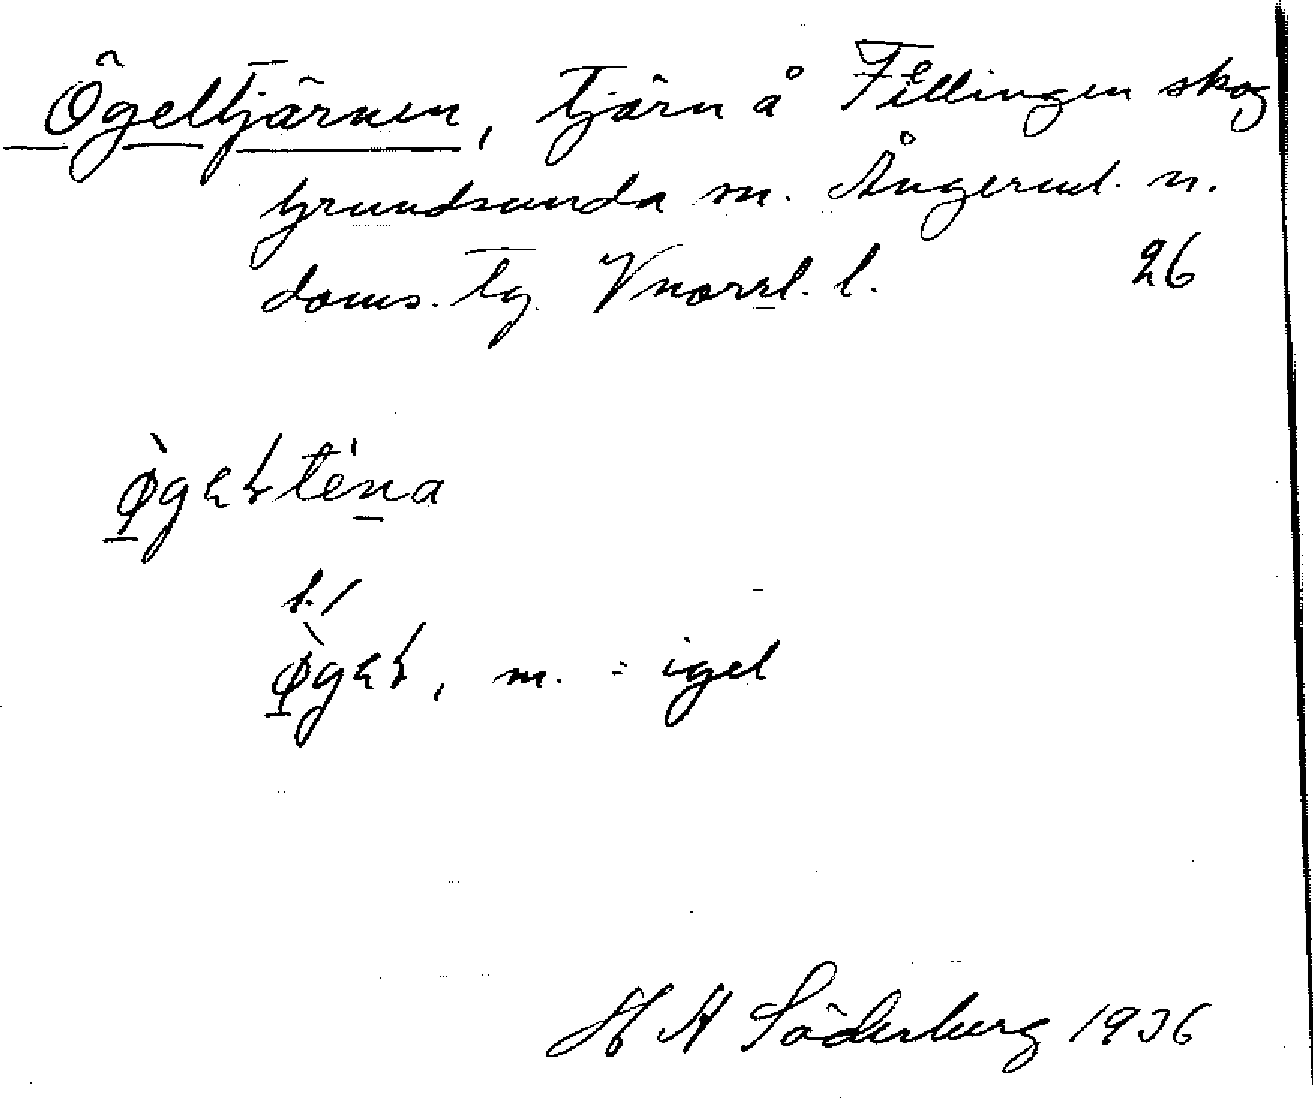 Ögeltjärnen, tjärn å Fillingen skog
Grundsunda sn. Ångerml. n.
doms. tg. Vnorrl. l. 26
m. = igel
H A Söderberg 1936